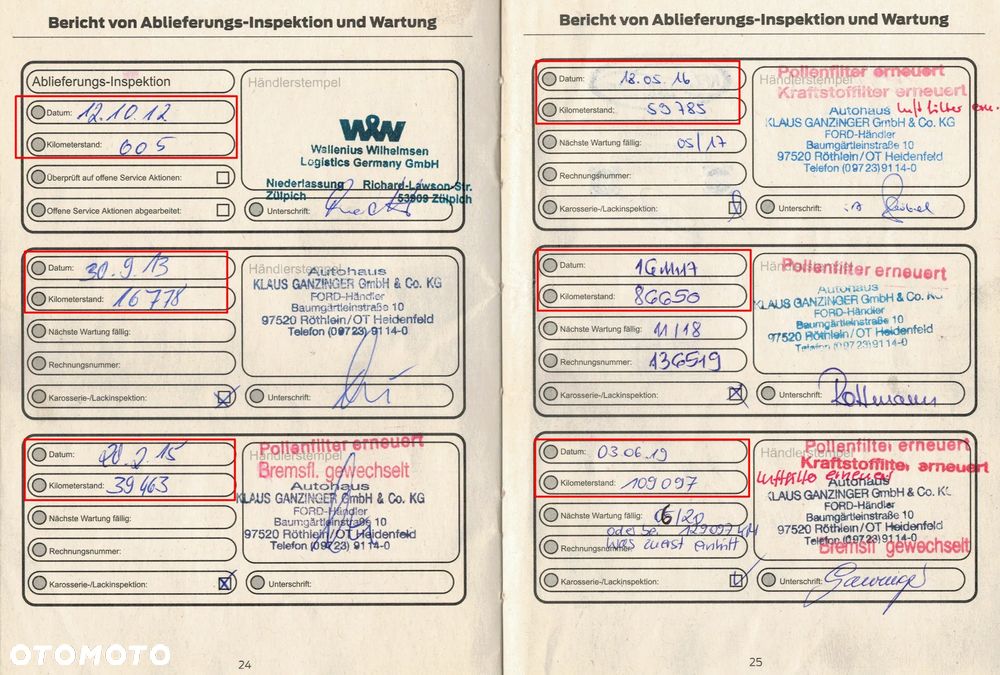 Bericht von Ablieferungs-Inspektion und Wartung
Ablieferungs-Inspektion
Datum: 12.10.12
Kilometerstand: 605
Überprüft auf offene Service Aktionen:
Offene Service Aktionen abgearbeitet:
Händlerstempel
W&W
Wallenius Wilhelmsen
Logistics Germany GmbH
Niederlassung Richard-Lawson-Str.
Zülpich 53909 Zülpich
Unterschrift:
Datum: 30.9.13
Kilometerstand: 16778
Nächste Wartung fällig:
Rechnungsnummer:
Karosserie-/Lackinspektion:
Händlerstempel
Autohaus
KLAUS GANZINGER GmbH & Co. KG
FORD-Händler
Baumgärtleinstraße 10
97520 Röthlein/OT Heidenfeld
Telefon (09723) 9114-0
Unterschrift:
Datum: 20.2.15
Kilometerstand: 39463
Nächste Wartung fällig:
Rechnungsnummer:
Karosserie-/Lackinspektion:
Pollenfilter erneuert
Händlerstempel
Bremsfl. gewechselt
Autohaus
KLAUS GANZINGER GmbH & Co. KG
FORD-Händler
Baumgärtleinstraße 10
97520 Röthlein/OT Heidenfeld
Telefon (09723) 9114-0
Unterschrift:
OTOMOTO
24
Bericht von Ablieferungs-Inspektion und Wartung
Datum: 18.05.16
Kilometerstand: 59785
Nächste Wartung fällig: 05/17
Rechnungsnummer:
Karosserie-/Lackinspektion:
Pollenfilter erneuert
Händlerstempel
Kraftstoffilter erneuert
Luftfilter erne.
Autohaus
KLAUS GANZINGER GmbH & Co. KG
FORD-Händler
Baumgärtleinstraße 10
97520 Röthlein/OT Heidenfeld
Telefon (09723) 9114-0
Unterschrift:
Datum:
Kilometerstand: 86650
Nächste Wartung fällig: 11/18
Rechnungsnummer: 136519
Karosserie-/Lackinspektion:
Pollenfilter erneuert
Autohaus
KLAUS GANZINGER GmbH & Co. KG
FORD-Händler
Baumgärtleinstraße 10
97520 Röthlein/OT Heidenfeld
Telefon (09723) 9114-0
Unterschrift: Rottmann
Datum: 03.06.19
Kilometerstand: 109097
Nächste Wartung fällig: 06/20
oder bei 129097 KM
Rechnungsnummer: was zuerst eintritt
Karosserie-/Lackinspektion:
Pollenfilter erneuert
Kraftstoffilter erneuert
erneuert
Autohaus
KLAUS GANZINGER GmbH & Co. KG
FORD-Händler
Baumgärtleinstraße 10
97520 Röthlein/OT Heidenfeld
Telefon (09723) 9114-0
Bremsfl. gewechselt
Unterschrift:
25